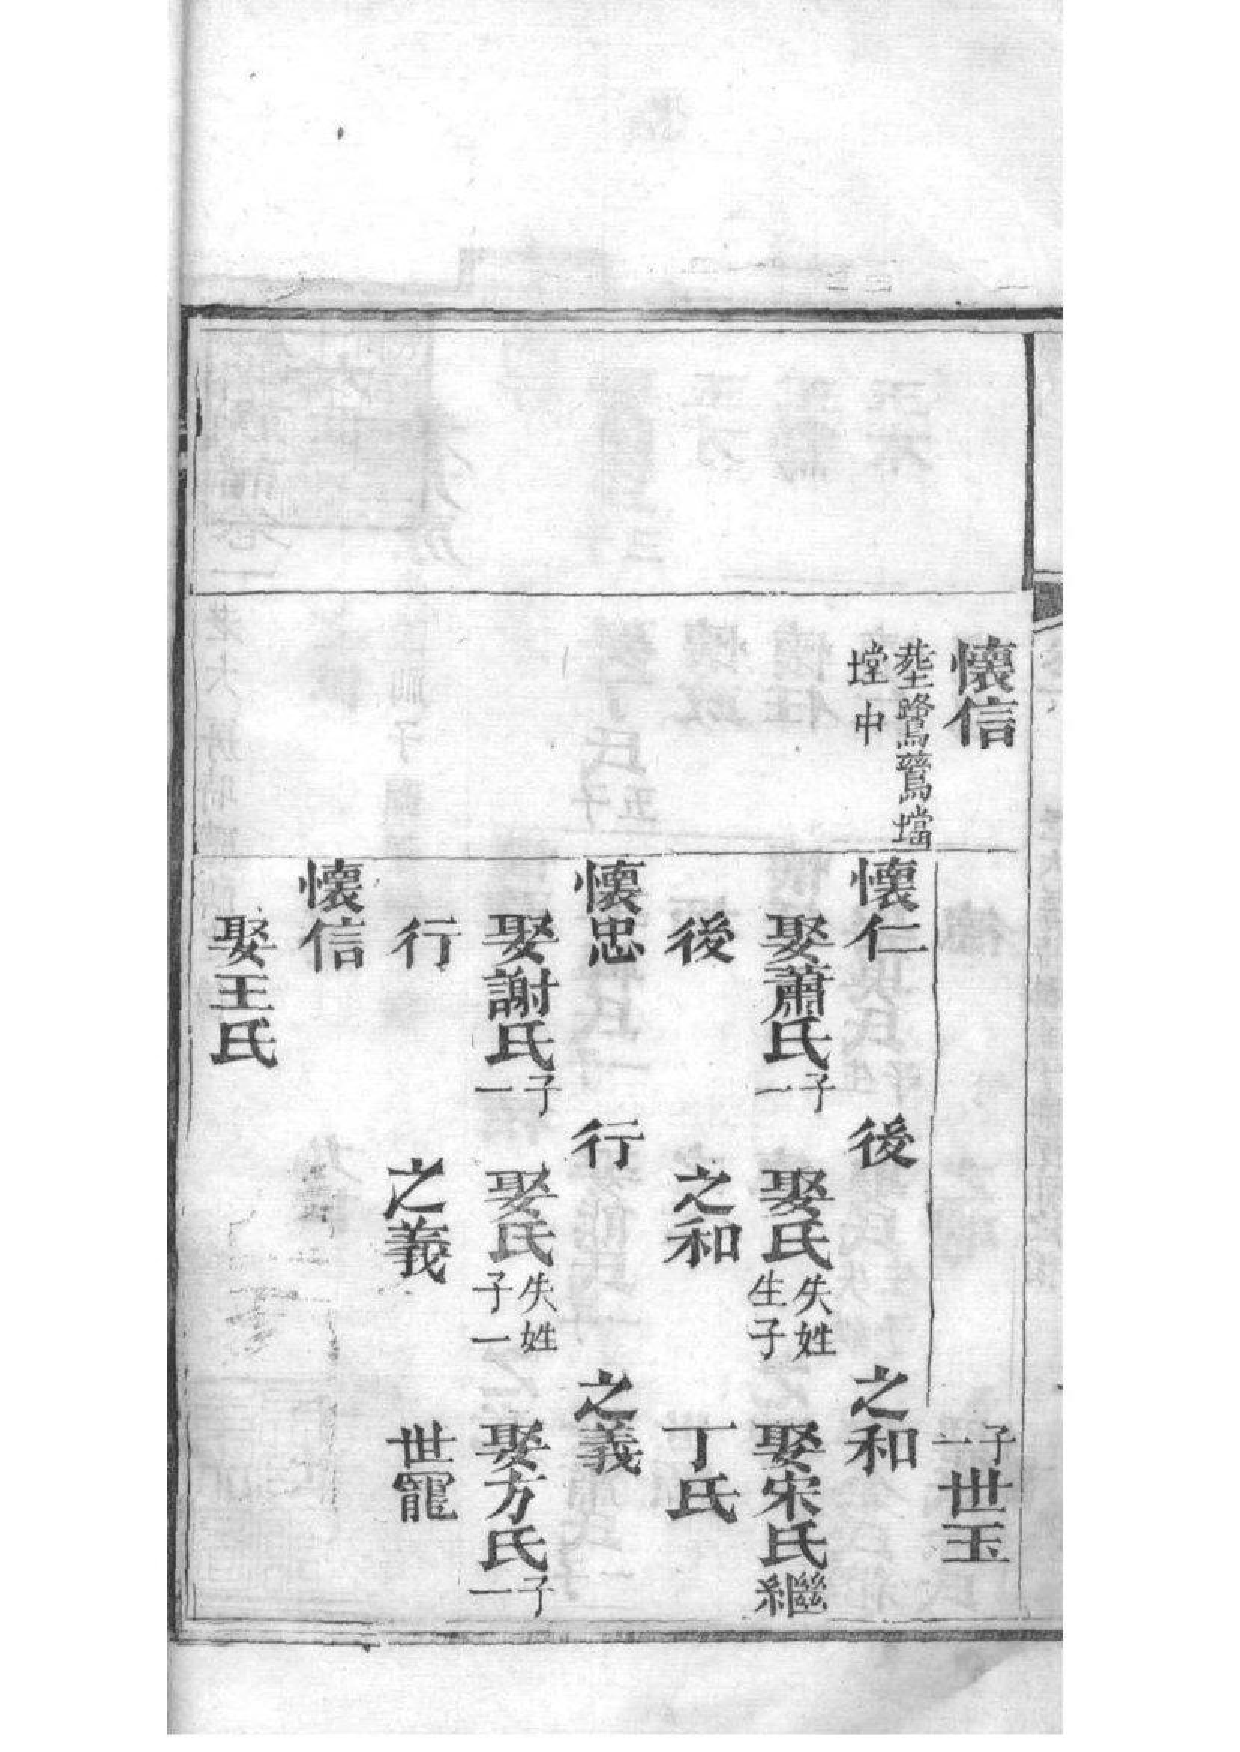 懷信
塟鷺鷥壋
塘中
子一
世玉
懷仁
後
之和
娶蕭氏子一
娶氏失姓生子
娶宋氏繼
後
之和
丁氏
懷忠
行
之義
娶謝氏子一
娶氏失姓子一
娶方氏子一
行
之義
世寵
懷信
娶王氏